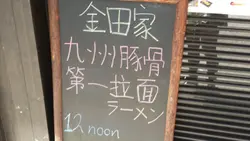 金田家
九州豚骨
第一拉面
ラーメン
12 noon